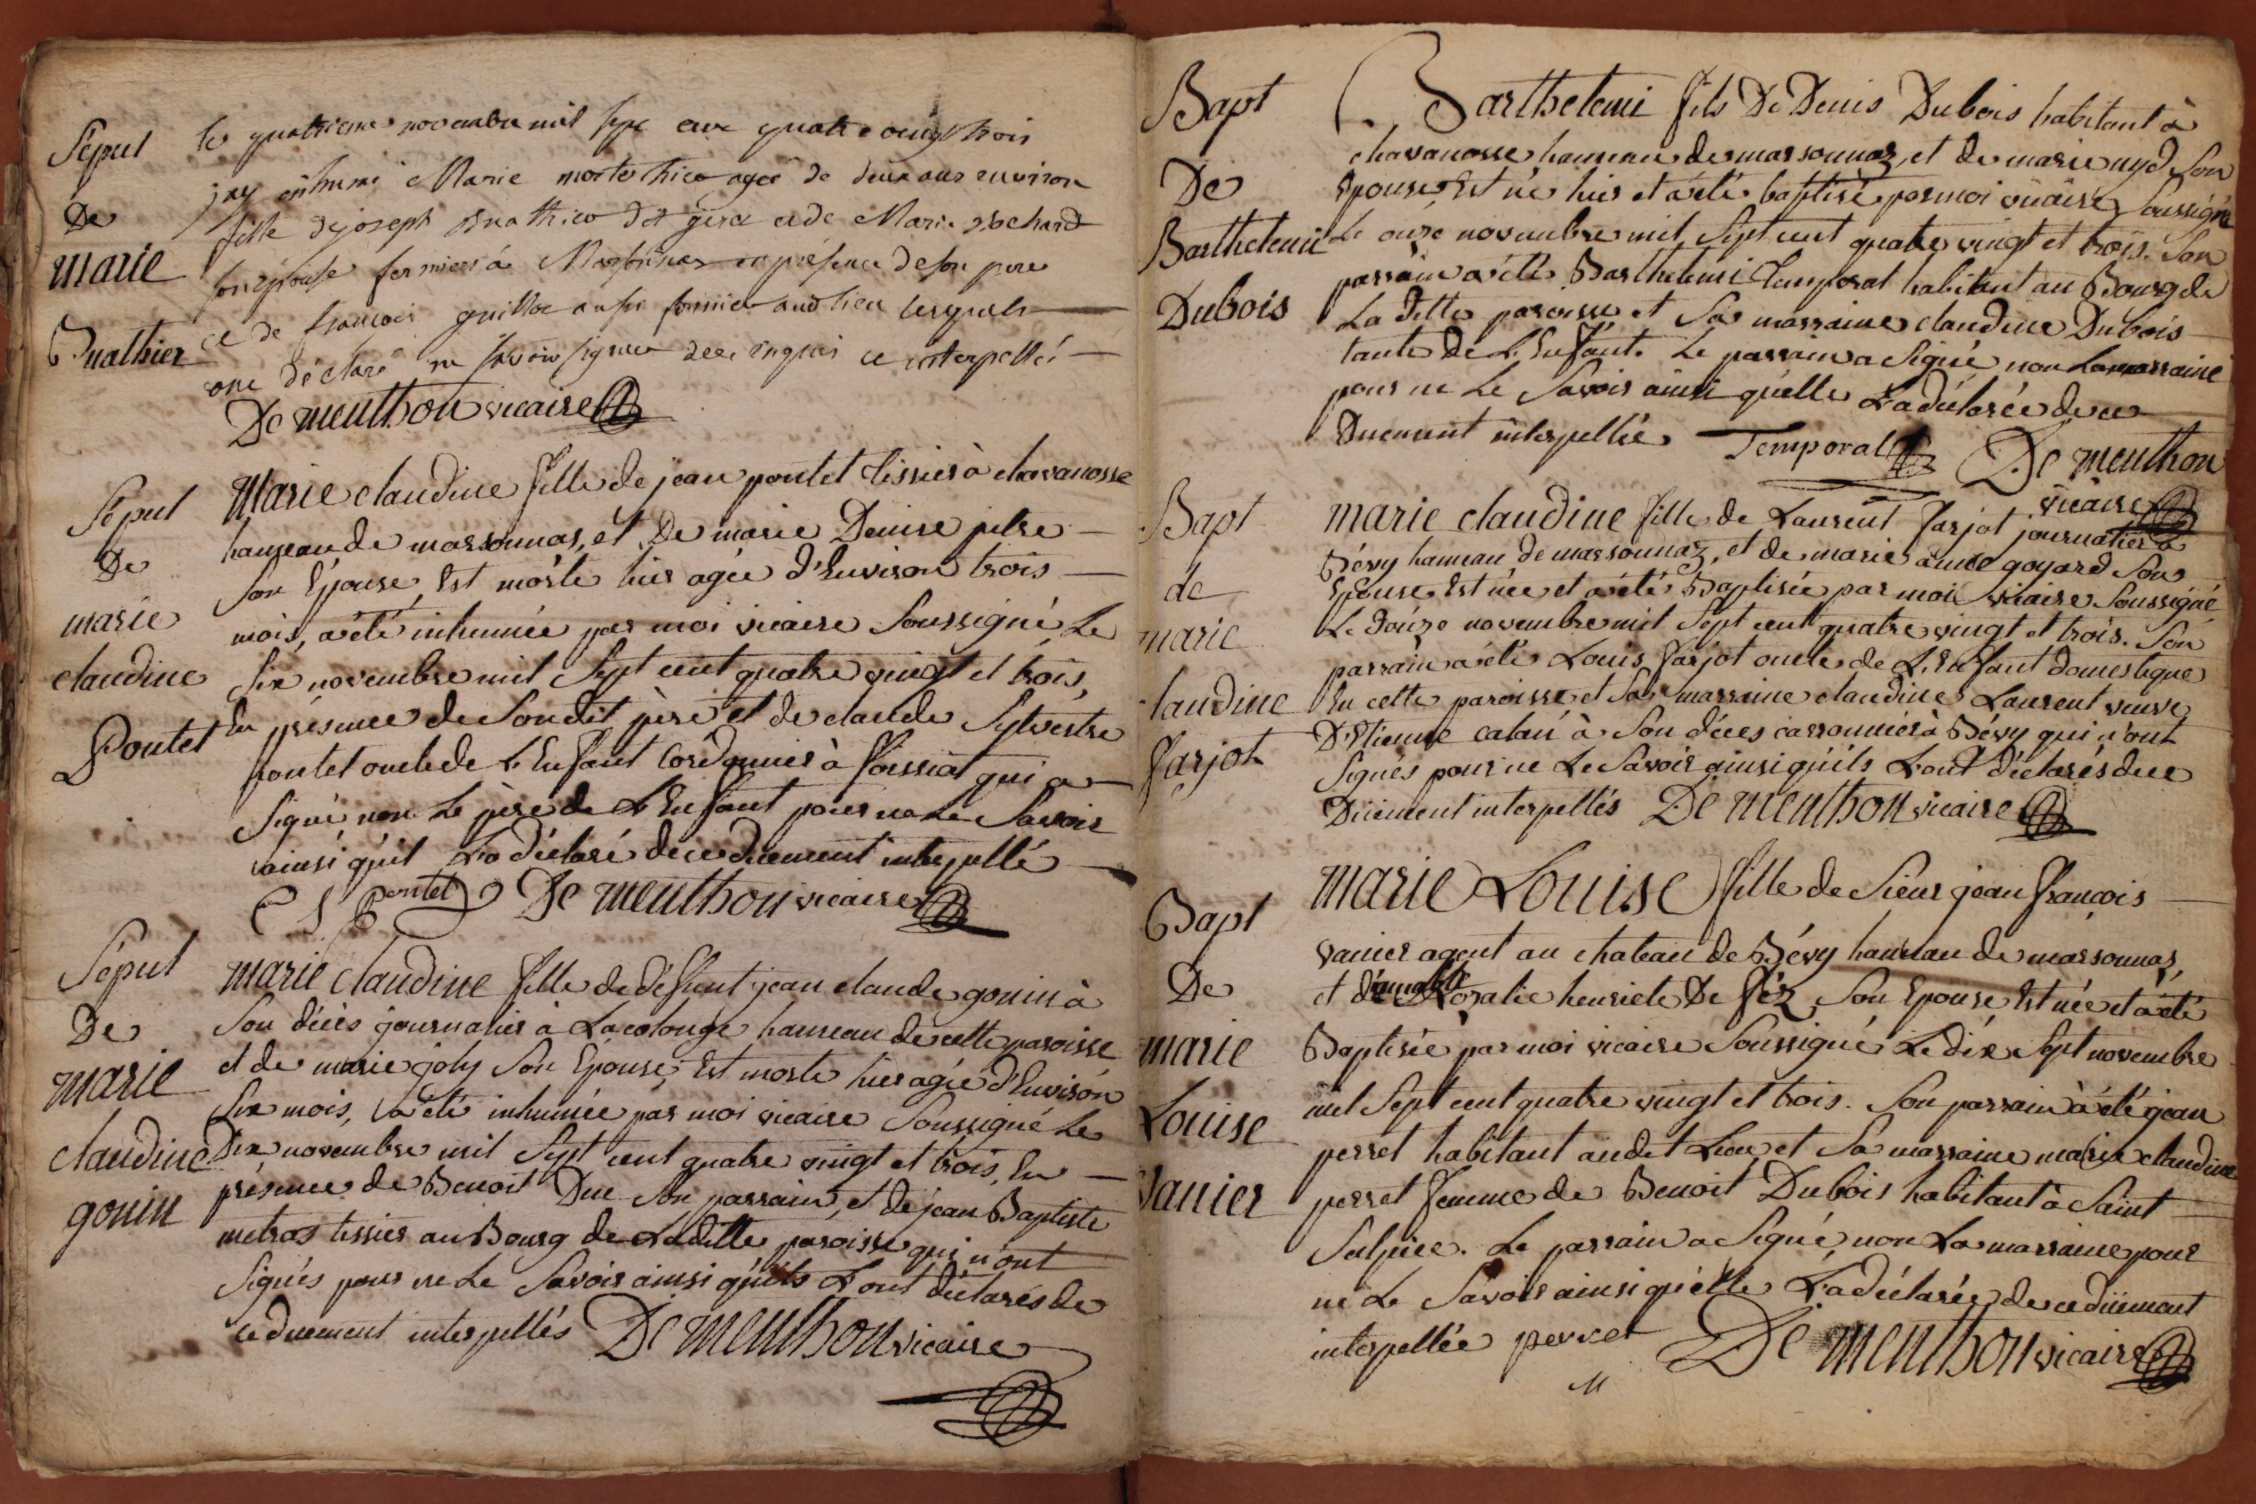 Sépul
De
marie
Buathier
le quatrieme novembre mil sept cent quatre vingt trois
jay inhumé Marie agée de deux ans environ
fille de joseph Buathier dit et de Marie Bochard
son épouse fermiers à Marsonnas en présence de son pere
et de françois guillot aussi fermier audit lieu lesquels
ont déclaré ne savoir signer de ce enquis et interpellés
De menthon vicaire
Sépul
De
marie
claudine
Pontet
Marie claudine fille de jean pontet tissier à chavanosse
hameau de marsonnas, et De marie Denise pitre
Son Epouse, Est morte hier agée d'Environ trois
mois, a été inhumée par moi vicaire Soussigné, Le
Six novembre mil Sept cent quatre vingt et trois,
En présence de Son dit père et de claude Sylvestre
pontet oncle de L'Enfant Cordonnier à foissiat qui a
Signé non Le père de L'Enfant pour ne Le Savoir
ainsi qu'il L'a déclaré de ce duement interpellé
C S Pontet De menthon vicaire
Sépul
De
marie
claudine
gonin
marie claudine fille de défunt jean claude gonin à
Son décès journalier à Lacolonge hameau de cette paroisse
et de marie joly Son Epouse, Est morte hier agée d'Environ
Six mois, a été inhumée par moi vicaire Soussigné Le
Dix novembre mil Sept cent quatre vingt et trois, En
présence de Benoit Duc Son parrain, et de jean Baptiste
metras tissier au Bourg de Laditte paroisse qui n'ont
Signés pour ne Le Savoir ainsi qu'ils L'ont déclarés de
ce duement interpellés De menthon vicaire
Bapt
De
Barthelemi
Dubois
Barthelemi fils De Denis Dubois habitant à
chavanosse hameau de marsonnaz, et de marie nyd Son
Epouse, Est né hier et a été baptisé par moi vicaire Soussigné
Le onze novembre mil Sept cent quatre vingt et trois. Son
parrain a été Barthelemi Temporal habitant au Bourg de
La ditte paroisse et Sa marraine claudine Dubois
tante de L'Enfant. Le parrain a Signé non La marraine
pour ne Le Savoir ainsi qu'elle L'a déclarée de ce
Duement interpellée Temporal De menthon
vicaire
Bapt
de
marie
claudine
farjot
marie claudine fille de Laurent farjot journalier à
Bévy hameau de marsonnaz, et de marie aimée goyard Son
Epouse Est née et a été Baptisée par moi vicaire Soussigné
Le Douze novembre mil Sept cent quatre vingt et trois. Son
parrain a été Louis farjot oncle de L'Enfant domestique
En cette paroisse et Sa marraine claudine Laurent veuve
D'Etienne à Son décès carronnier à Bévy qui n'ont
Signés pour ne Le Savoir ainsi qu'ils L'ont déclarés de ce
Duement interpellés De menthon vicaire
Bapt
De
marie
Louise
Vanier
Marie Louise fille de Sieur jean françois
vanier agent au chateau de Bévy hameau de marsonnas,
et demoiselle Rozalie henriete De féz Son Epouse, Est née et a été
Baptisée par moi vicaire Soussigné Le dix Sept novembre
mil Sept cent quatre vingt et trois. Son parrain a été jean
perret habitant audit Lieu et Sa marraine marie claudine
perret femme de Benoit Dubois habitant à Saint
Sulpice. Le parrain a Signé non La marraine pour
ne Le Savoir ainsi qu'elle L'a déclarée de ce duement
interpellée perret De menthon vicaire